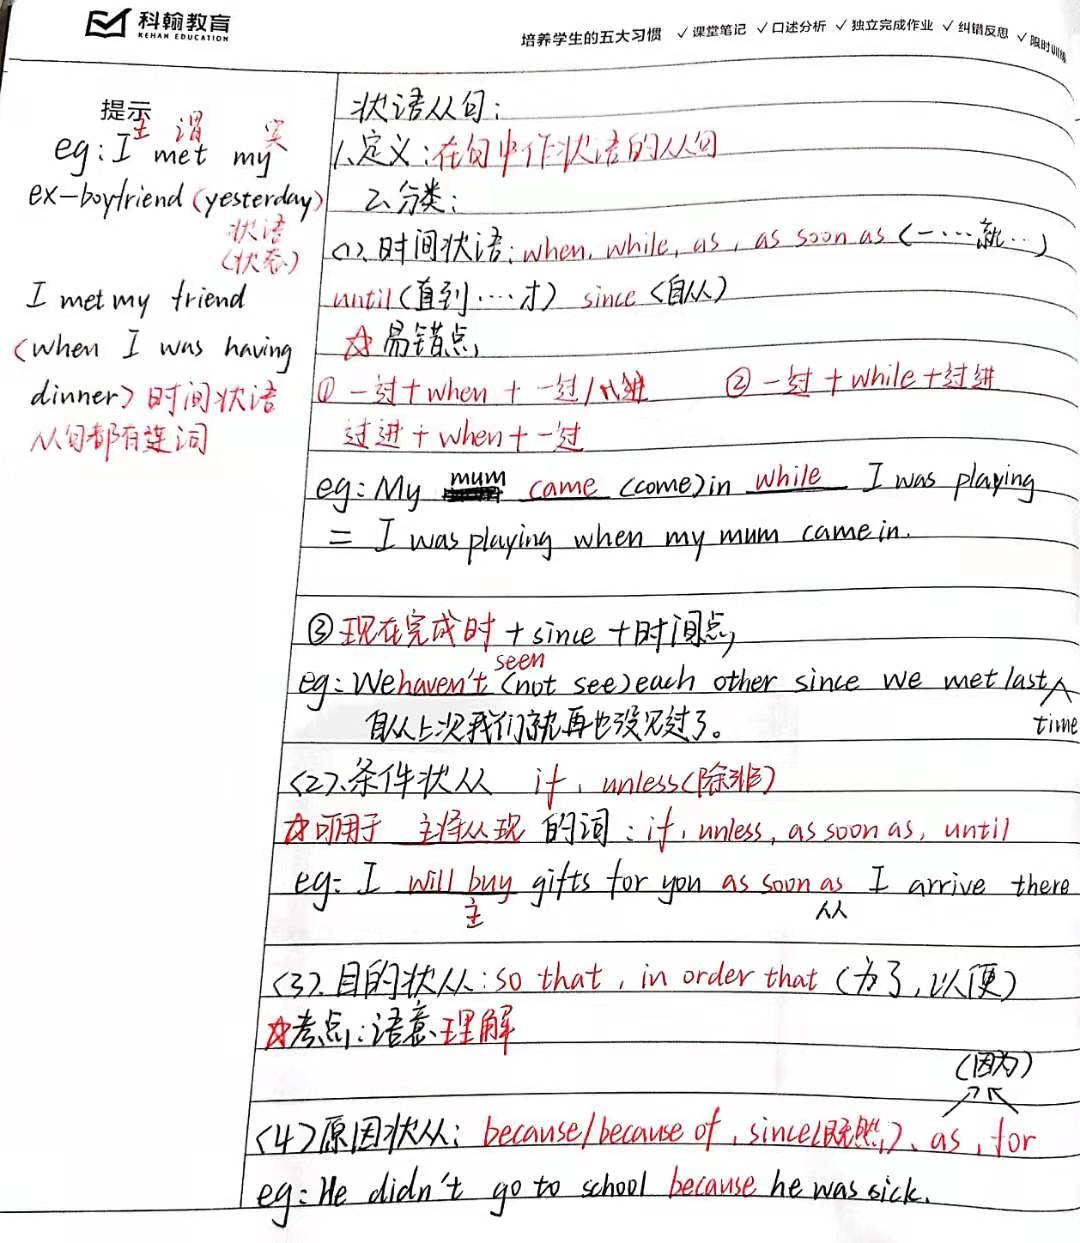 科翰教育
KEHAN EDUCATION
培养学生的五大习惯 ✓课堂笔记 ✓口述分析 ✓独立完成作业 ✓纠错反思 ✓限时训练
提示
主 谓 宾
eg: I met my
ex-boyfriend (yesterday)
状语
(状态)
I met my friend
(when I was having
dinner) 时间状语
从句都有连词
状语从句:
1、定义:在句中作状语的从句
2、分类:
(1). 时间状语: when, while, as, as soon as (一····就··)
until (直到····才) since (自从)
☆易错点,
① 一过+when + 一过/过进 ② 一过+while+过进
过进+when+一过
eg: My mum came (come) in while I was playing
= I was playing when my mum came in.
③ 现在完成时+since+时间点,
seen
eg: We haven't (not see) each other since we met last
time
自从上次我们就再也没见过了。
(2). 条件状从 if, unless (除非)
☆可用于 主将从现 的词: if, unless, as soon as, until
eg: I will buy gifts for you as soon as I arrive there
主 从
(3). 目的状从: so that, in order that (为了,以便)
☆考点:语意理解
(因为)
(4) 原因状从: because/because of, since(既然)、as, for
eg: He didn't go to school because he was sick.